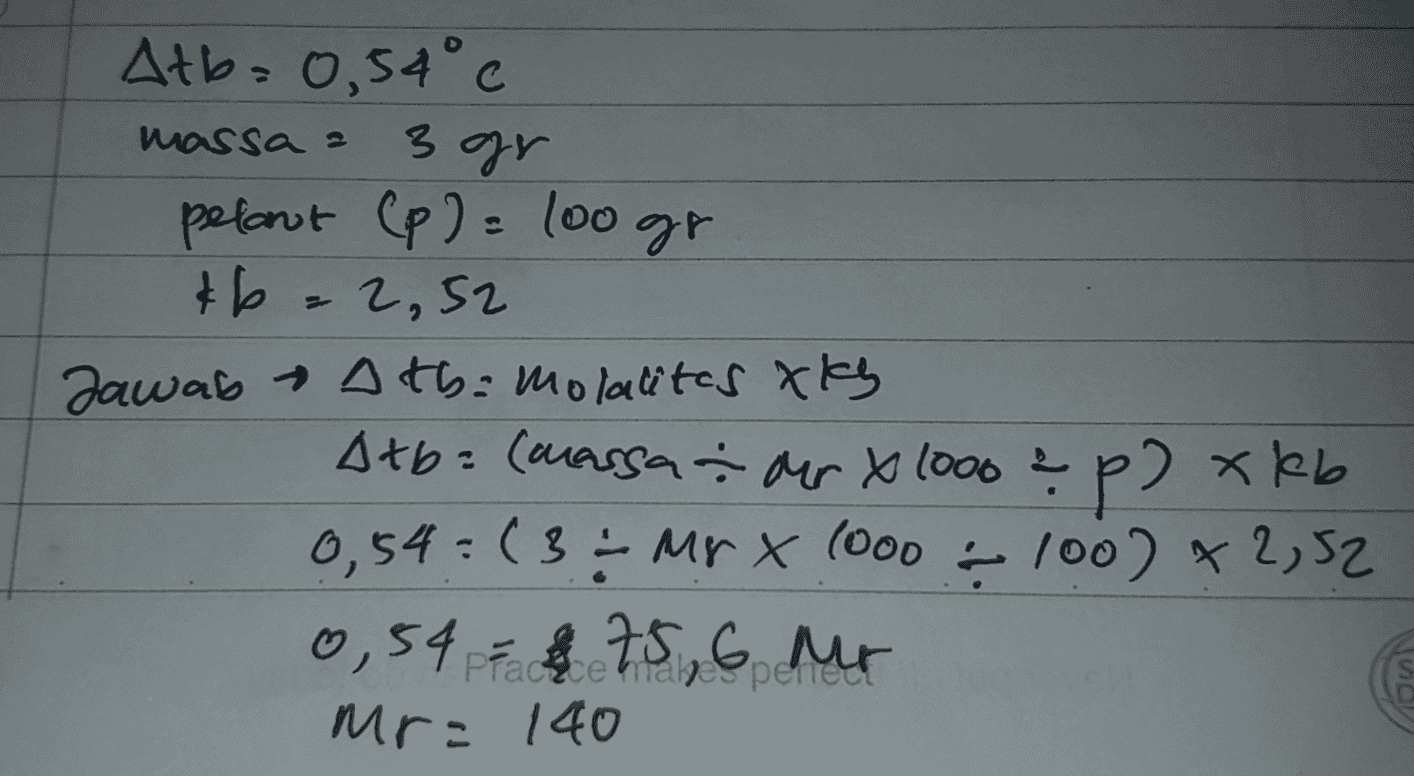 Δtb = 0,54°C
massa = 3 gr
pelarut (p) = 100 gr
kb = 2,52
Jawab → Δtb = Molalitas x kb
Δtb = (massa ÷ Mr x 1000 ÷ p) x kb
0,54 = (3 ÷ Mr x 1000 ÷ 100) x 2,52
0,54 = 75,6 Mr
Practice makes perfect
Mr = 140